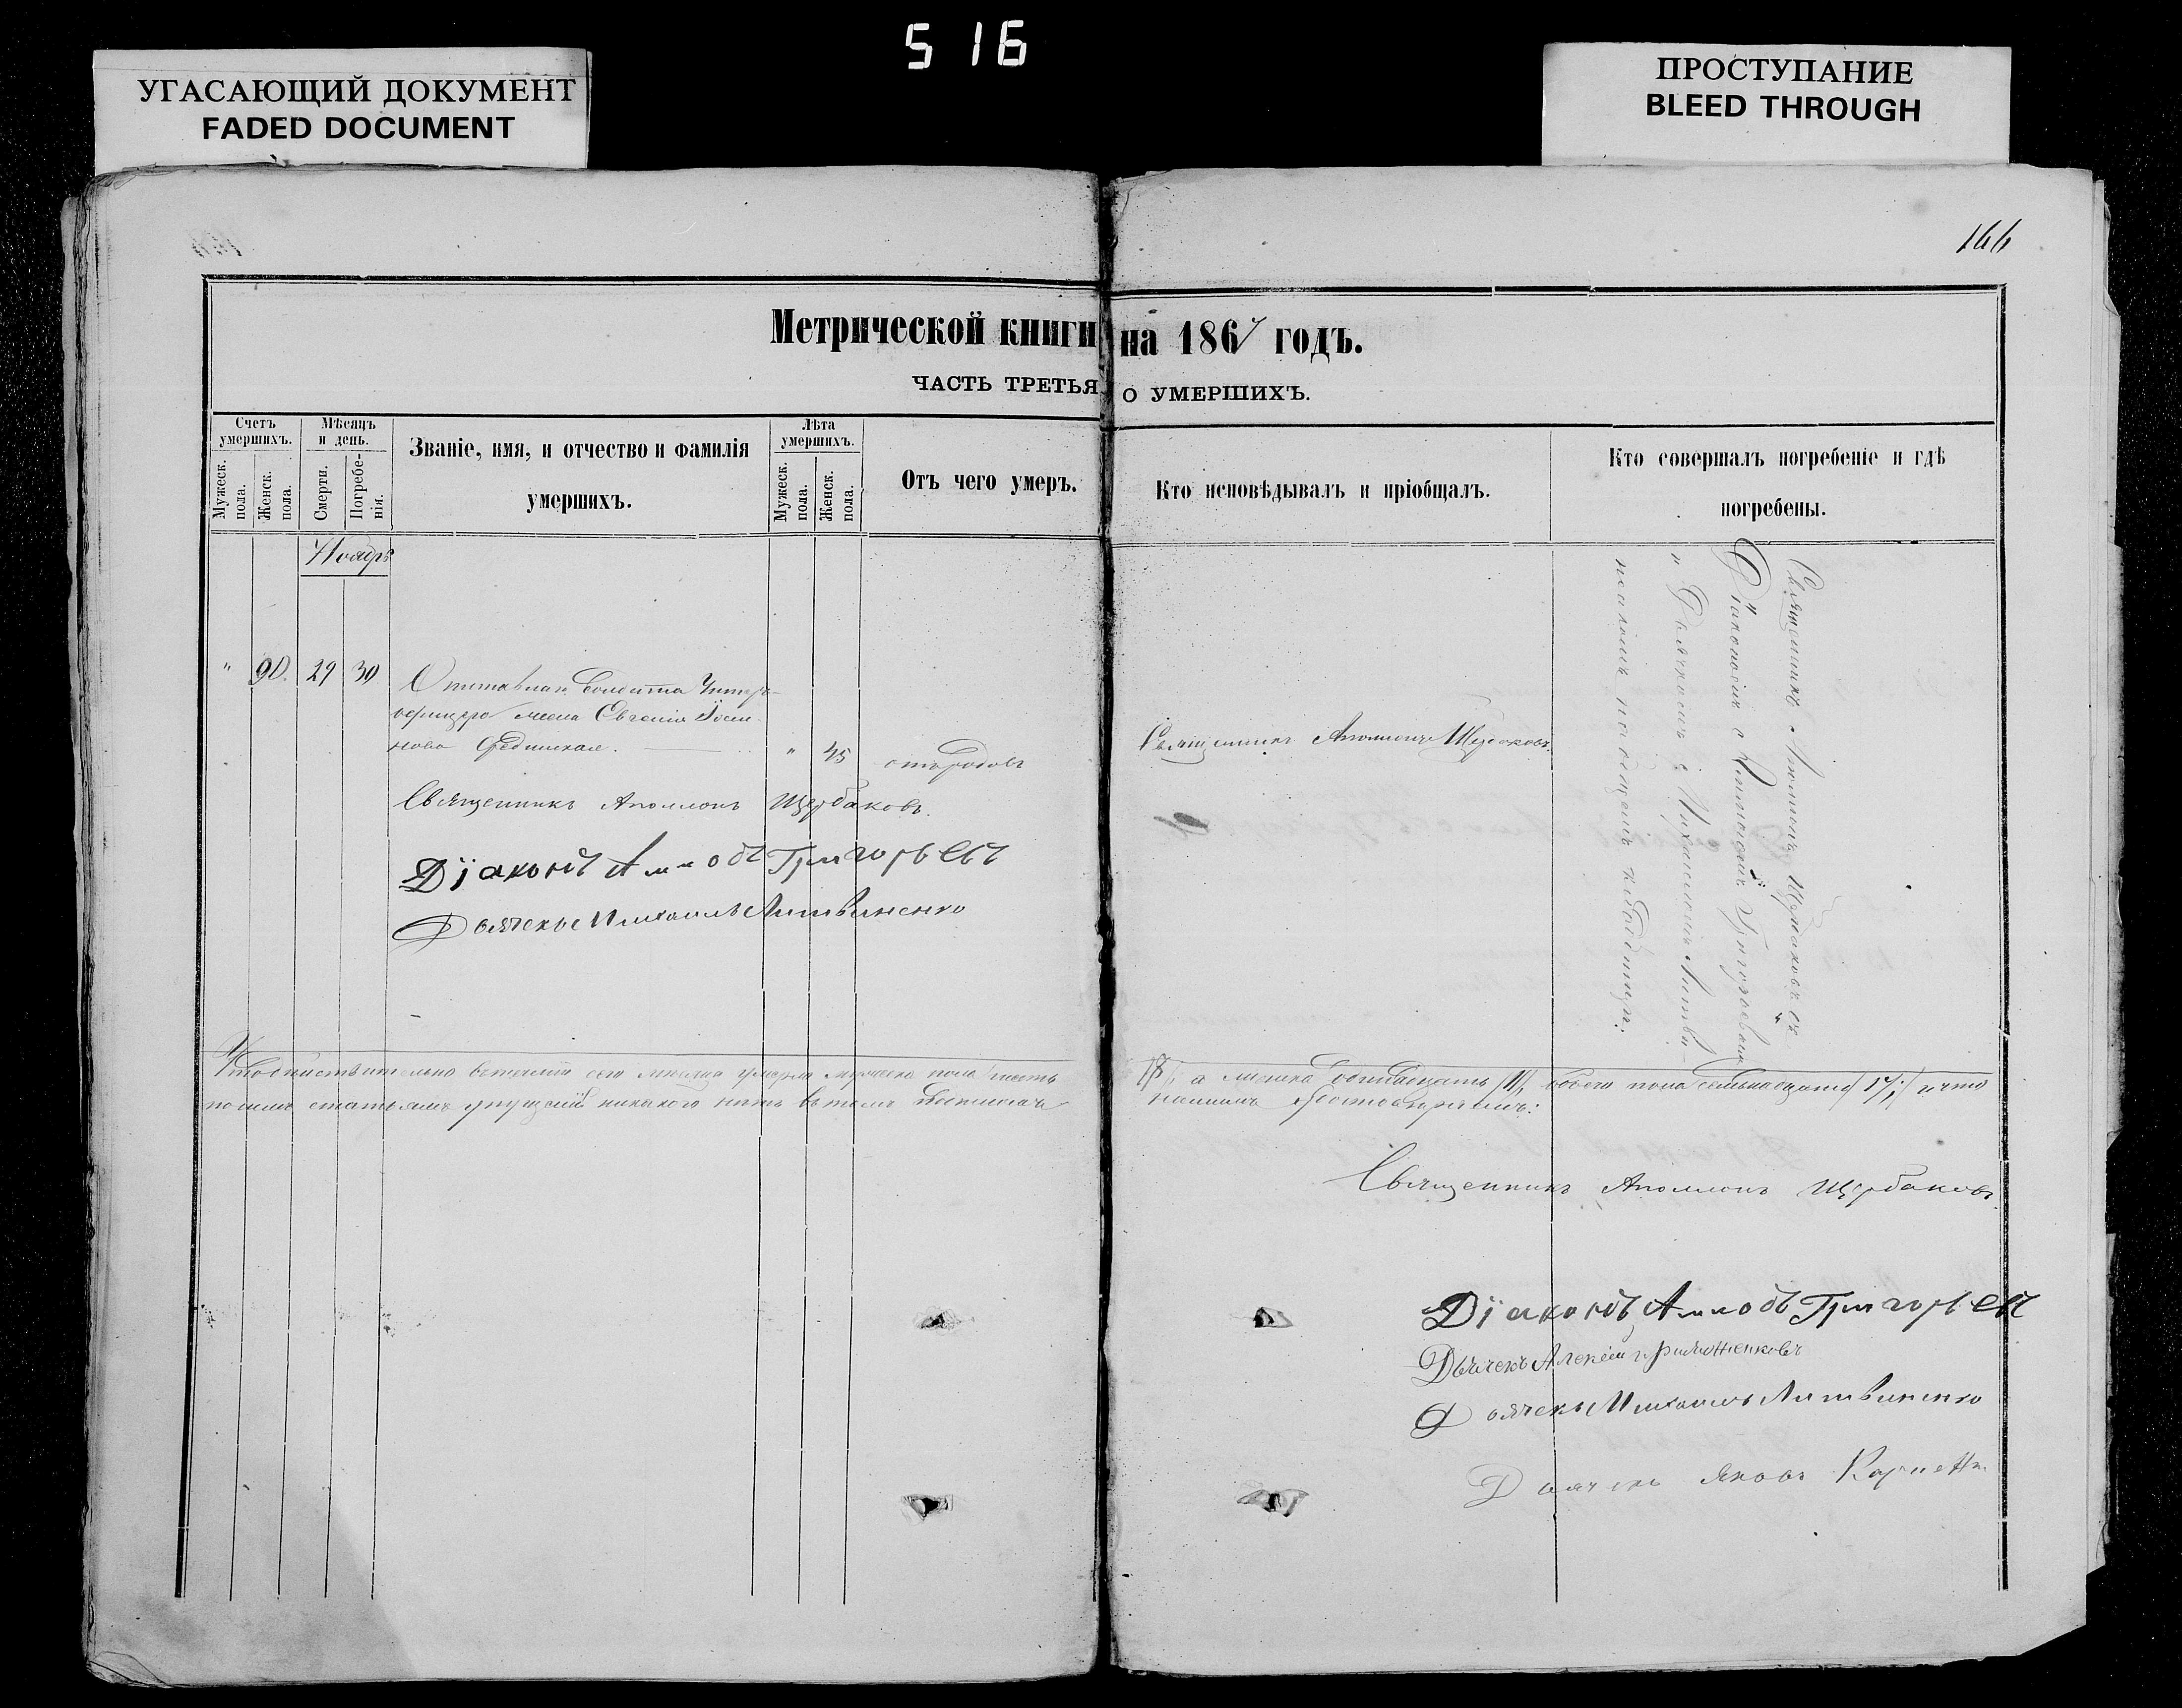 516
УГАСАЮЩИЙ ДОКУМЕНТ
FADED DOCUMENT
ПРОСТУПАНИЕ
BLEED THROUGH
166
Метрической книги на 1867 годъ.
ЧАСТЬ ТРЕТЬЯ О УМЕРШИХЪ.
Счетъ умершихъ.
Мужеск. пола.
Женск. пола.
Мѣсяцъ и день.
Смерти.
Погребенія.
Званіе, имя, и отчество и фамилія
умершихъ.
Лѣта умершихъ.
Мужеск. пола.
Женск. пола.
Отъ чего умеръ.
Кто исповѣдывалъ и пріобщалъ.
Кто совершалъ погребеніе и гдѣ
погребены.
Ноябрь
" 90. 29 30
Унтеръ-
офицера жена Евгенія
" 45 отъ родовъ
Священникъ Аполлонъ Щербаковъ.
Священникъ Аполлонъ Щербаковъ съ
Діакономъ Григорьевымъ
" Дьячкомъ Михаиломъ Литви-
кладбищѣ.
Священникъ Аполлонъ Щербаковъ.
Діаконъ Григорьевъ
Дьячекъ Михаилъ Литвиненко
Что дѣйствительно въ теченіи сего мѣсяца умерло мужеска пола шесть
/6/, а женска одинадцать /11/ обоего пола семьнадцать /17/ и что
по симъ статьямъ упущенія никакого нѣтъ въ томъ
Священникъ Аполлонъ Щербаковъ.
Діаконъ Григорьевъ
Дьячекъ Алексѣй
Дьячекъ Михаилъ Литвиненко
Дьячекъ Яковъ